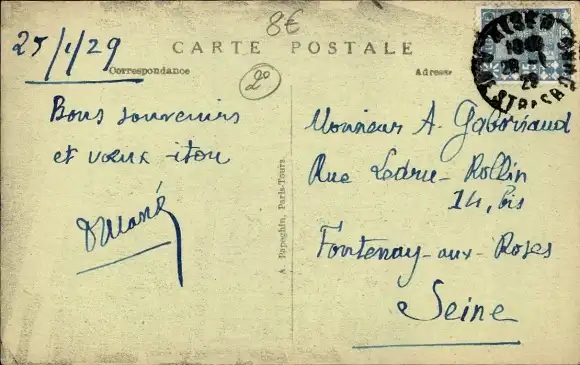 8€
25/1/29
CARTE POSTALE
Correspondance
Adresse
2°
ALGER
Bons souvenirs
et vœux itou
A. Papeghin, Paris-Tours
Monsieur A. Gaborniaud
Rue Ledru-Rollin
14, bis
Fontenay-aux-Roses
Seine